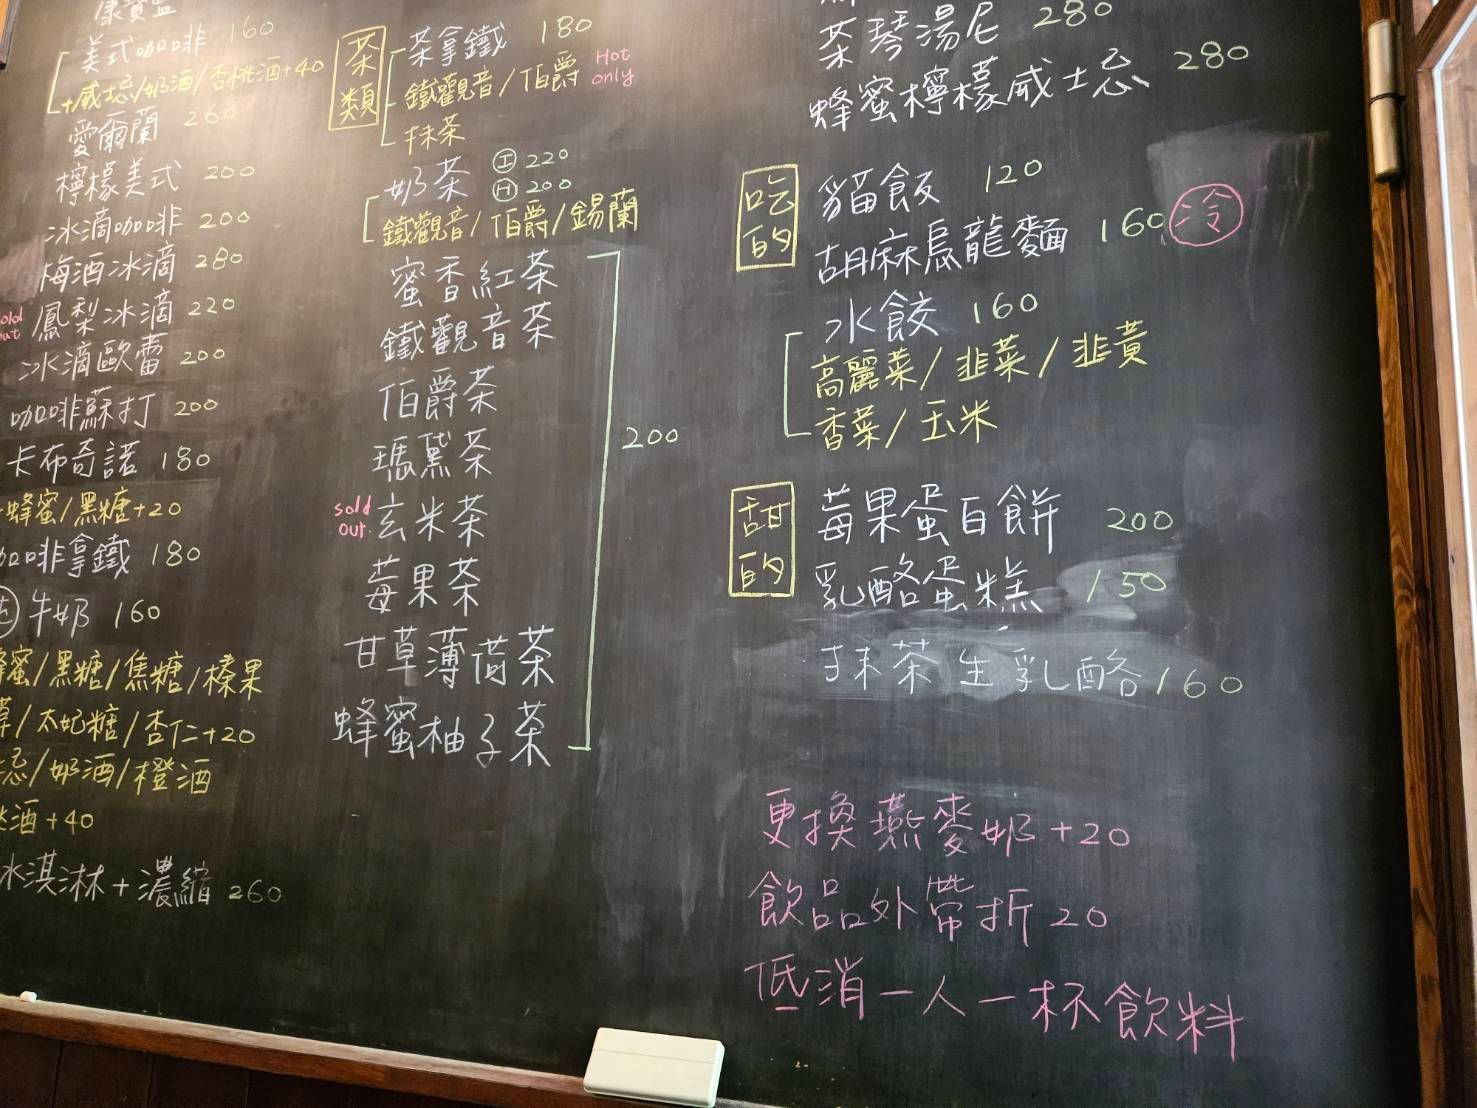 康寶藍
美式咖啡 160
+威士忌/奶酒/杏桃酒+40
愛爾蘭 260
檸檬美式 200
冰滴咖啡 200
梅酒冰滴 280
sold out 鳳梨冰滴 220
冰滴歐蕾 200
咖啡蘇打 200
卡布奇諾 180
蜂蜜/黑糖+20
咖啡拿鐵 180
牛奶 160
蜂蜜/黑糖/焦糖/榛果
/太妃糖/杏仁+20
忌/奶酒/橙酒
酒+40
冰淇淋+濃縮 260
茶類
茶拿鐵 180
鐵觀音/伯爵 Hot only
抹茶
奶茶 I 220
H 200
鐵觀音/伯爵/錫蘭
蜜香紅茶
鐵觀音茶
伯爵茶
瑪黛茶
sold out. 玄米茶
莓果茶
甘草薄荷茶
蜂蜜柚子茶
200
茶琴湯尼 280
蜂蜜檸檬威士忌 280
吃的
貓飯 120
胡麻烏龍麵 160 冷
水餃 160
高麗菜/韭菜/韭黃
香菜/玉米
甜的
莓果蛋白餅 200
乳酪蛋糕 150
抹茶生乳酪 160
更換燕麥奶+20
飲品外帶折20
低消一人一杯飲料